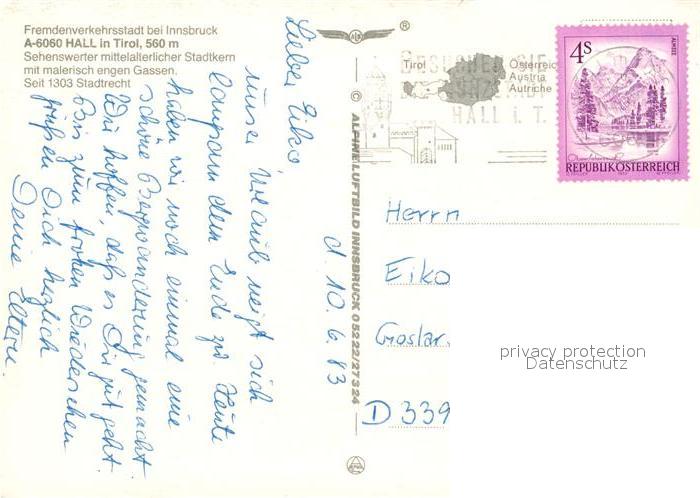 Fremdenverkehrsstadt bei Innsbruck
A-6060 HALL in Tirol, 560 m
Sehenswerter mittelalterlicher Stadtkern
mit malerisch engen Gassen.
Seit 1303 Stadtrecht
®
Tirol
Österreich
Austria
Autriche
BESUCHEN SIE
HALL i. T.
4S
ALMSEE
REPUBLIK ÖSTERREICH
© ALPINE LUFTBILD INNSBRUCK 05222/27324
d. 10. 6. 83
Lieber Eiko
unser Urlaub neigt sich
langsam dem Ende zu. Heute
haben wir noch einmal eine
schöne Bergwanderung gemacht
Wir hoffen, daß es Dir gut geht.
Bis zum frohen Wiedersehen
grüßen Dich herzlich
Deine Eltern.
Herrn
Eiko
Goslar.
D 339
privacy protection
Datenschutz